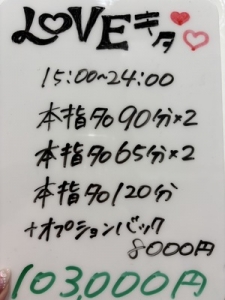 LOVEキタ
15:00~24:00
本指名90分×2
本指名65分×2
本指名120分
+オプションバック
8000円
103,000円